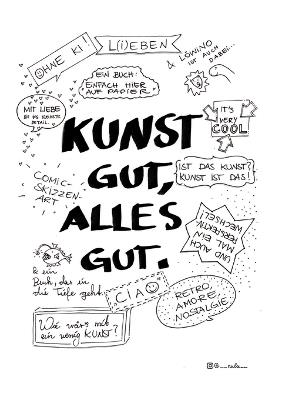 OHNE KI!
L(I)EBEN
& LÖWINO
IST AUCH
DABEI...
EIN BUCH:
EINFACH HIER
AUF PAPIER.
MIT LIEBE
BIS INS KLEINSTE
DETAIL.
IT'S
VERY
COOL
KUNST
GUT,
ALLES
GUT.
IST DAS KUNST?
KUNST IST DAS!
COMIC-
SKIZZEN-
ART
UND AUCH
MAL EIN
PERSPEKTIV-
WECHSEL
& ein
Buch, das in
die Tiefe geht.
CIAO
RETRO,
AMORE
NOSTALGIE
Wie wär's mit
ein wenig KUNST?